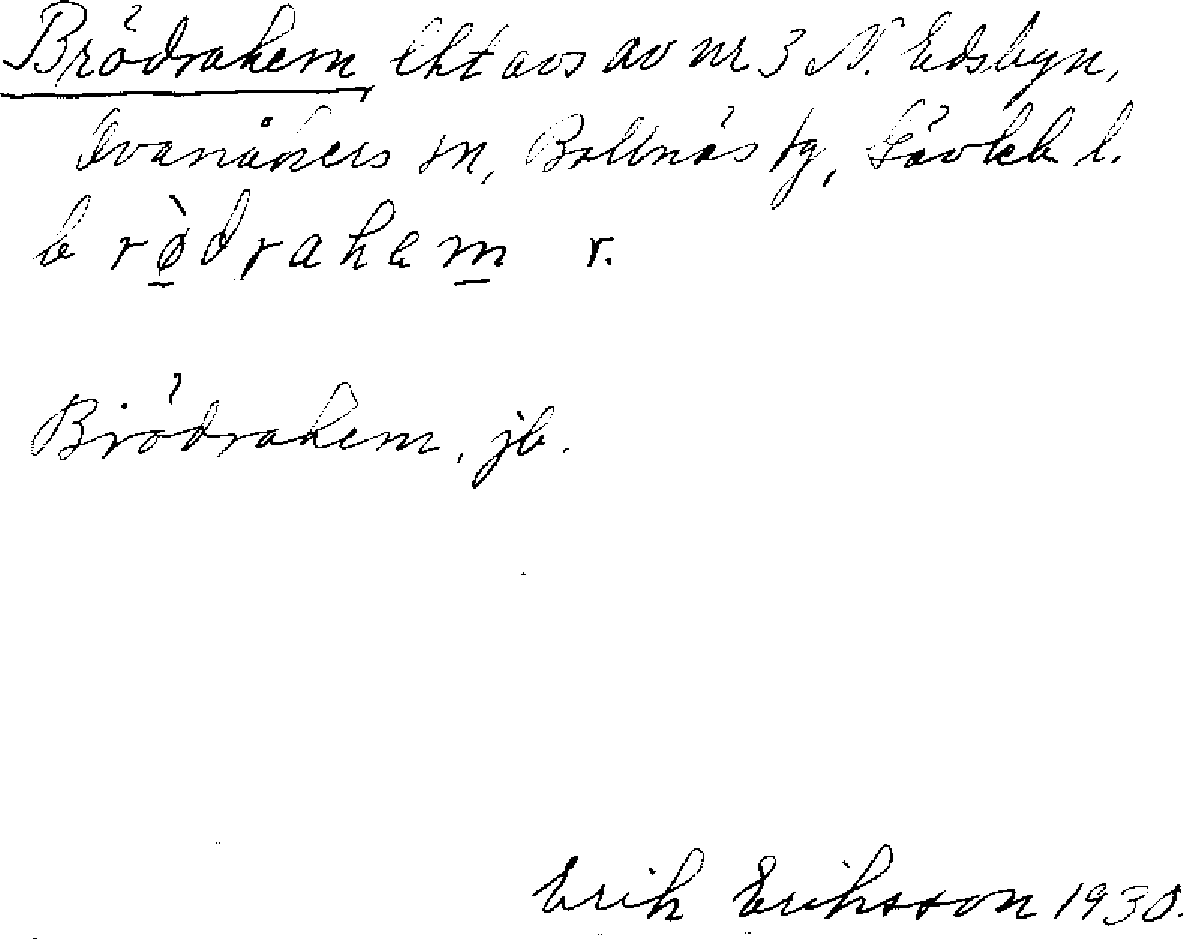 Brödrahem, lht avs av nr 3 N. Edsbyn,
Ovanåkers sn, Bollnäs tg, Gävleb l.
brø̀drahem r.
Brödrahem, jb.
Erik Eriksson 1930.